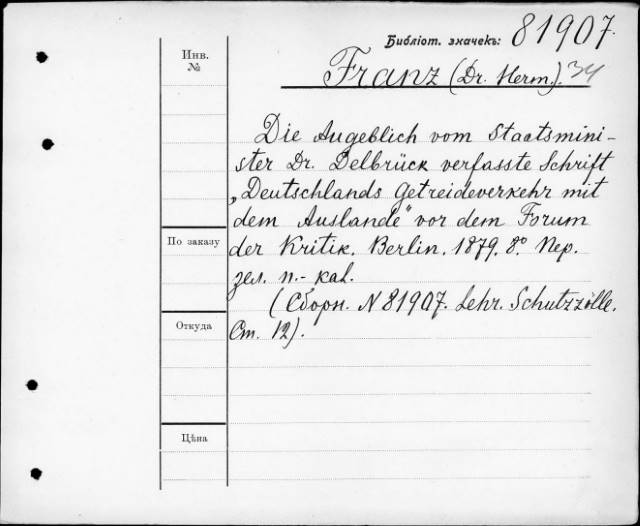 Библіот. значекъ: 81907.
Инв. №
Franz (Dr. Herm.). 34
Die Augeblich vom Staatsmini-
ster Dr. Delbrück verfasste Schrift
„Deutschlands Getreideverkehr mit
dem Auslande" vor dem Forum
der Kritik. Berlin. 1879. 8º. Пер.
зел. п.- kal.
(Сборн. N 81907. Lehr. Schutzzölle.
Ст. 12).
По заказу
Откуда
Цѣна